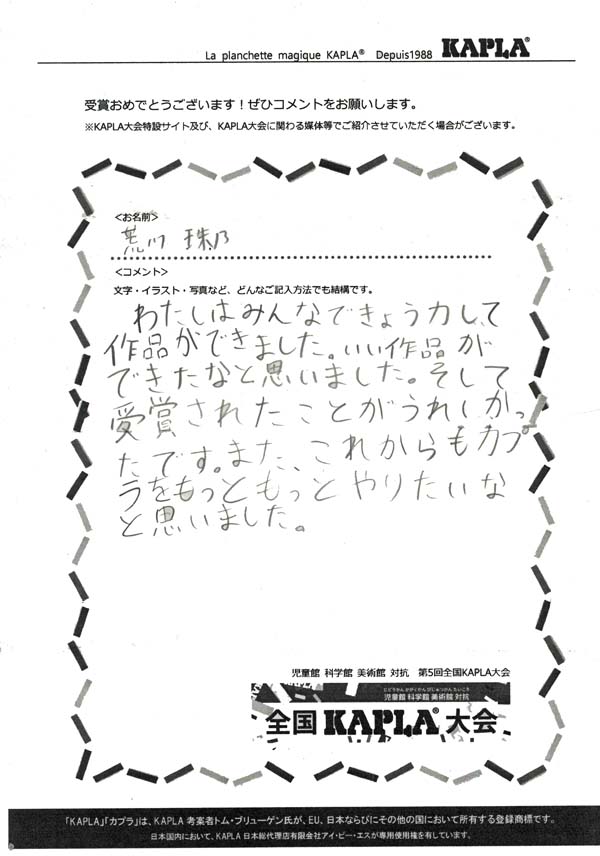 La planchette magique KAPLA® Depuis1988 KAPLA®
受賞おめでとうございます！ぜひコメントをお願いします。
※KAPLA大会特設サイト及び、KAPLA大会に関わる媒体等でご紹介させていただく場合がございます。
<お名前>
荒川 珠乃
<コメント>
文字・イラスト・写真など、どんなご記入方法でも結構です。
わたしはみんなできょう力して
作品ができました。いい作品が
できたなと思いました。そして
受賞されたことがうれしかっ
たです。また、これからもカプ
ラをもっともっとやりたいな
と思いました。
児童館 科学館 美術館 対抗 第5回全国KAPLA大会
じどうかん かがくかん びじゅつかん たいこう
児童館 科学館 美術館 対抗
全国 KAPLA® 大会
「KAPLA」「カプラ」は、KAPLA 考案者トム・ブリューゲン氏が、EU、日本ならびにその他の国において所有する登録商標です。
日本国内において、KAPLA 日本総代理店有限会社アイ・ピー・エスが専用使用権を有しています。